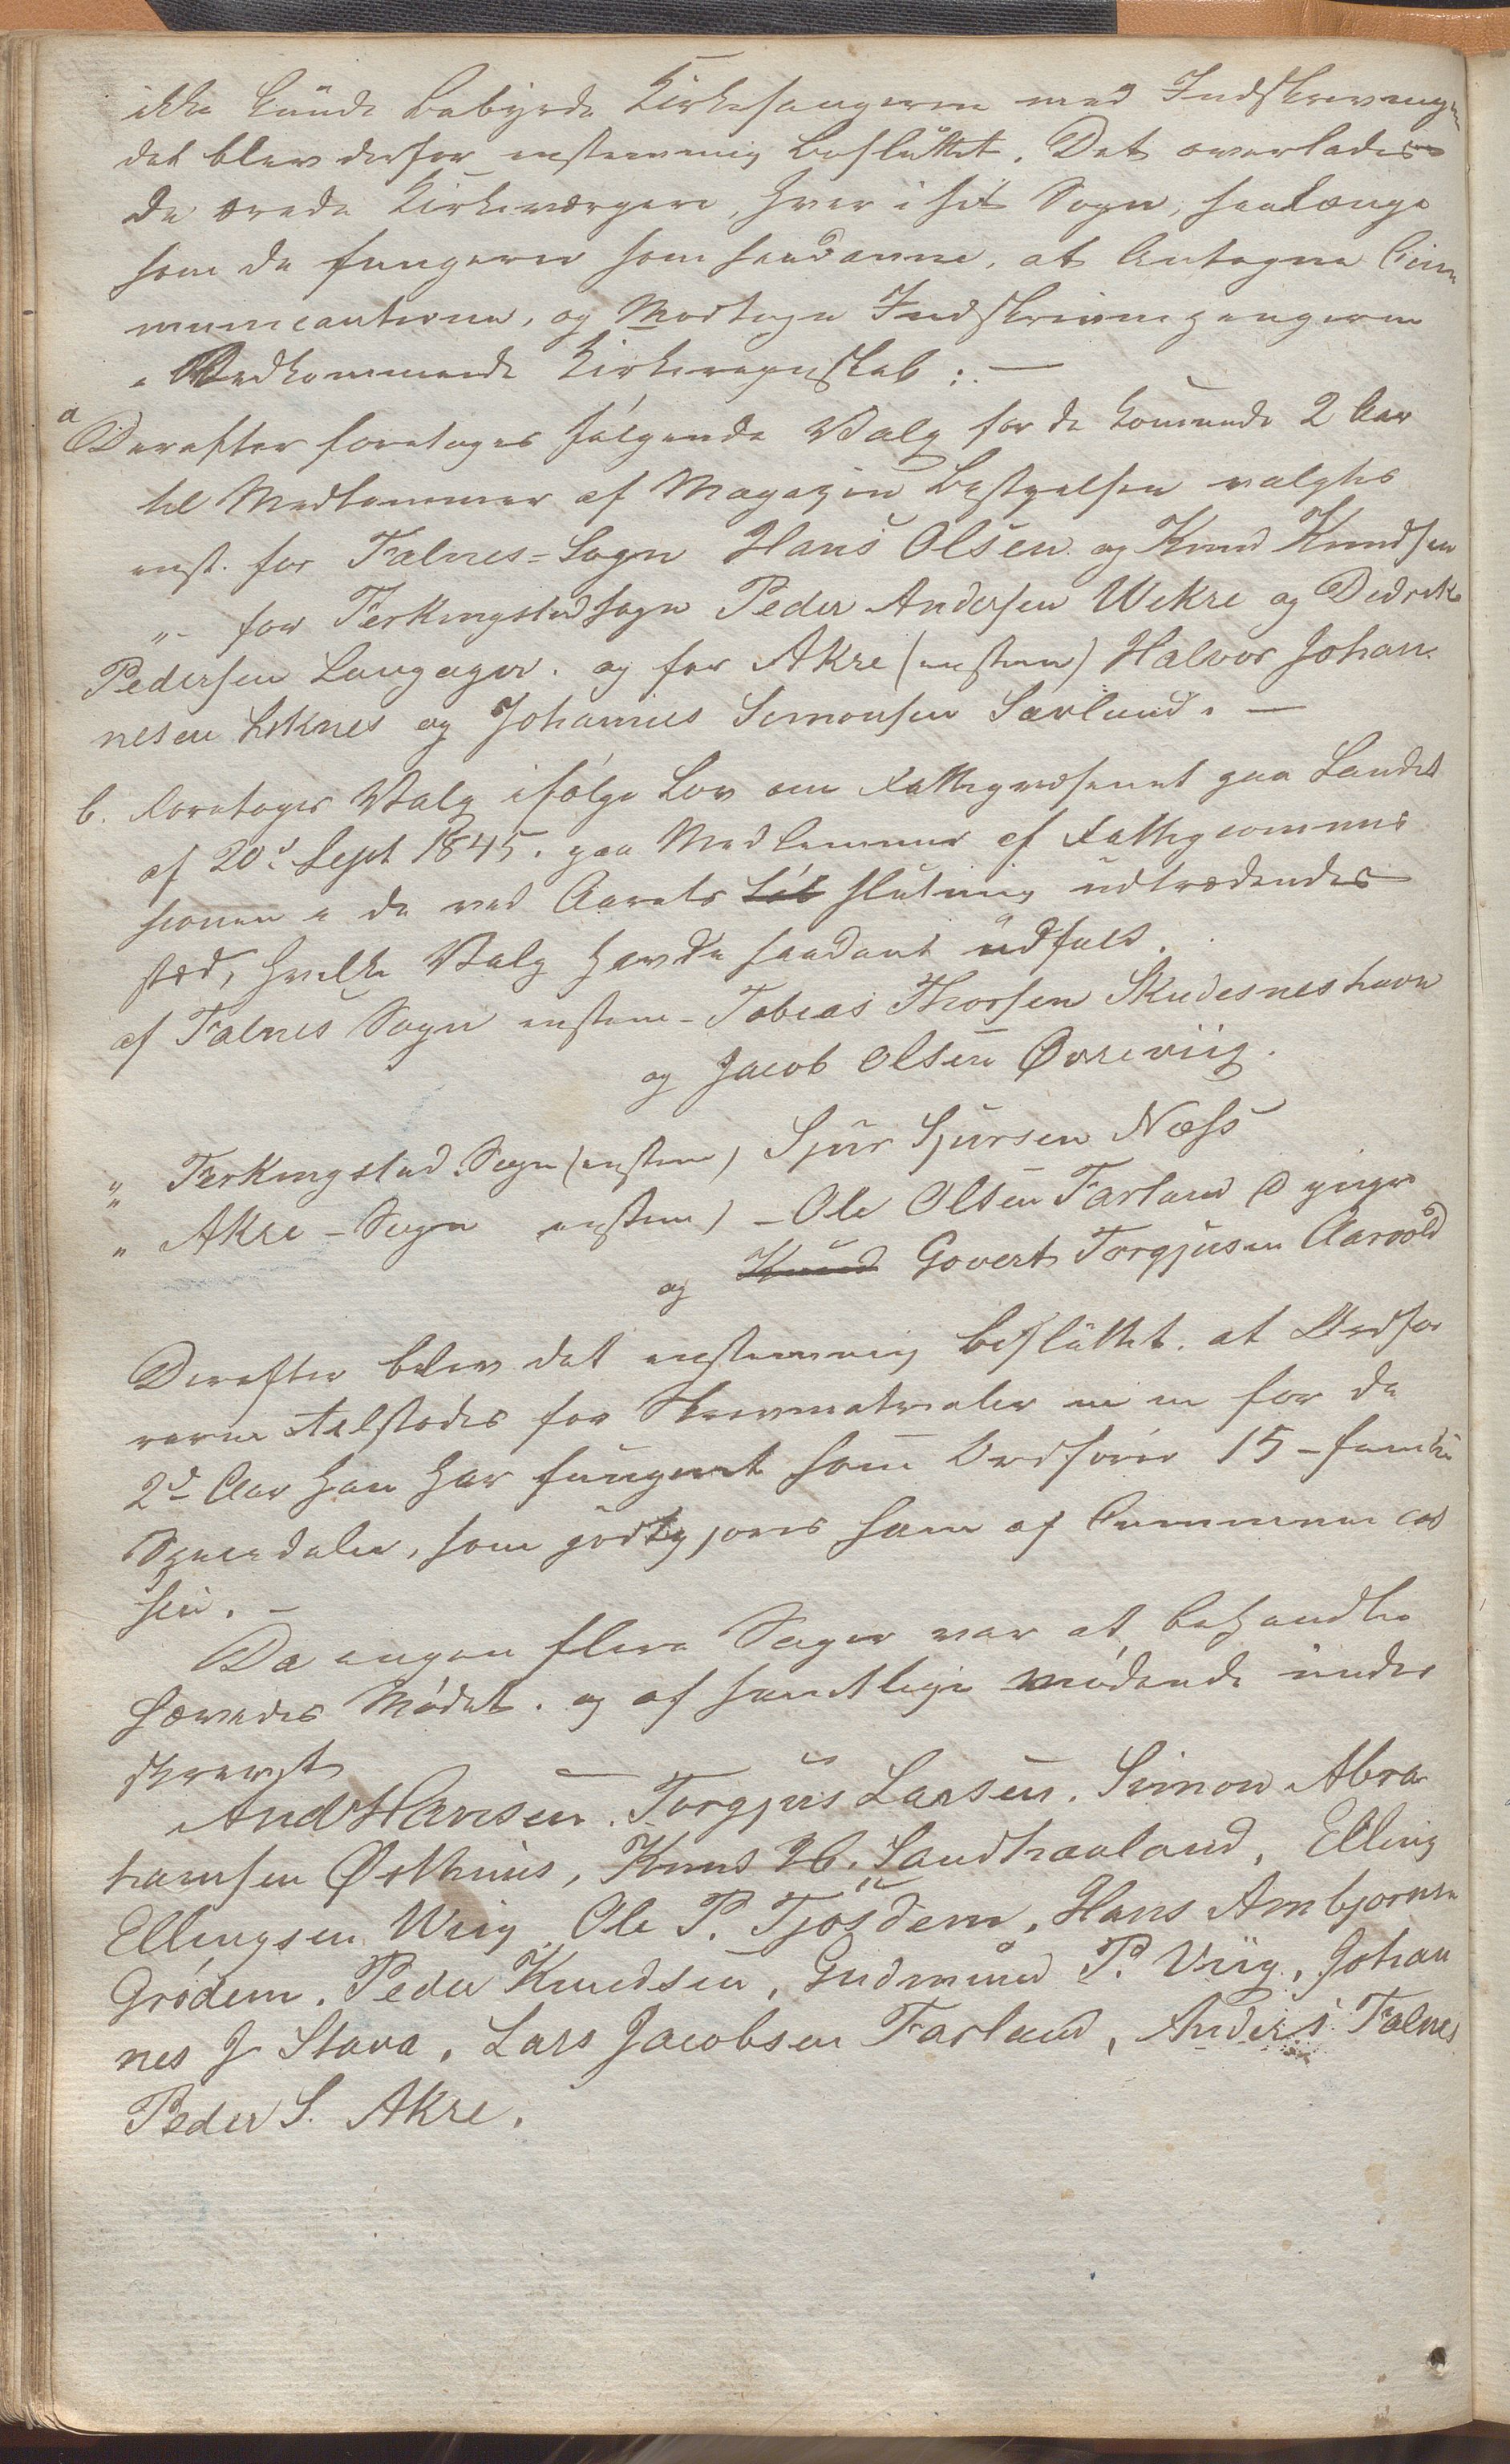 ikke kunde bebyrde Kirkesangerne med Indskrivningen
det blev derfor enstemmig besluttet. Det overlades
de ærede Kirkeværgere, hver i sit Sogn, saalænge
som de fungerer som saadanne, at Antegne Com
municanterne, og Modtage Indskrivningpengerne
i Vedkommende Kirkeregnskab :. —
a Derefter foretoges følgende Valg for de kommende 2 Aar
til Medlemmer af Magazin Bestyrelsen valgtes
enst. for Falnes-Sogn Hans Olsen og Knud Knudsen
"- for Ferkingstad sogn Peder Andersen Wikre og Didrik
Pedersen Langager. og for Akre (enstem) Halvor Johan
nesen Liknes og Johannes Simonsen Sævland. —
b. Foretoges Valg ifølge Lov om Fattigvæsenet paa Landet
af 20d Sept 1845. paa Medlemmer af Fattigcommis
sionen i de ved Aarets Løb slutning udtrædendes
sted, hvilke Valg havde saadant udfald.
af Falnes Sogn enstem - Tobias Thorsen Skudesneshavn
og Jacob Olsen Øvreviig.
" Ferkingstad Sogn (enstem) Sjur Sjursen Næss
" Akre - Sogn enstem) - Ole Olsen Farland d yngre
og Knud Govert Torgjusen Aarvold
Derefter blev det enstemmig besluttet. at Ordfø
reren tilstodes for Skrivmatrialer m m for de
2d Aar han har fungert som Ordfører 15 - femten
Speciedaler, som godtgjøres ham af Communecas
sen. -
Da ingen flere Sager var at behandle
hævedes Mødet. og af samtlige mødende under
skrevet
And Hansen. Torgjus Larsen. Simon Abra
hamsen Østhuus, Knud H. Sandhaaland, Elling
Ellingsen Wiig Ole P. Tjøsdem, Hans Arnbjørnsen
Grødem. Peder Knudsen, Gudmund P. Viig, Johan
nes J Stava, Lars Jacobsen Farland, Anders Falnes
Peder S. Akre.